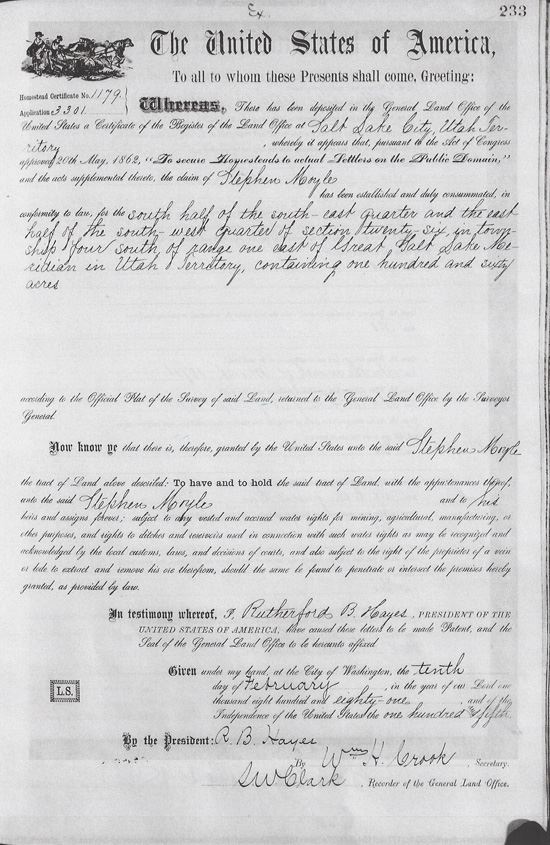 Ex.
233
The United States of America,
To all to whom these Presents shall come, Greeting:
Homestead Certificate No. 1179.
Application 3301
Whereas, There has been deposited in the General Land Office of the
United States a Certificate of the Register of the Land Office at Salt Lake City, Utah Ter-
ritory, whereby it appears that, pursuant to the Act of Congress
approved 20th May, 1862, "To secure Homesteads to actual Settlers on the Public Domain,"
and the acts supplemental thereto, the claim of Stephen Moyle
has been established and duly consummated, in
conformity to law, for the south half of the south-east quarter and the east
half of the south-west quarter of section twenty-six, in town-
ship four south, of range one east of Great Salt Lake Me-
ridian in Utah Territory, containing one hundred and sixty
acres
according to the Official Plat of the Survey of said Land, returned to the General Land Office by the Surveyor
General.
Now know ye that there is, therefore, granted by the United States unto the said Stephen Moyle
the tract of Land above described: To have and to hold the said tract of Land, with the appurtenances thereof,
unto the said Stephen Moyle and to his
heirs and assigns forever; subject to any vested and accrued water rights for mining, agricultural, manufacturing, or
other purposes, and rights to ditches and reservoirs used in connection with such water rights as may be recognized and
acknowledged by the local customs, laws, and decisions of courts, and also subject to the right of the proprietor of a vein
or lode to extract and remove his ore therefrom, should the same be found to penetrate or intersect the premises hereby
granted, as provided by law.
In testimony whereof, I, Rutherford B. Hayes, PRESIDENT OF THE
UNITED STATES OF AMERICA, have caused these letters to be made Patent, and the
Seal of the General Land Office to be hereunto affixed.
Given under my hand, at the City of Washington, the tenth
L.S.
day of February, in the year of our Lord one
thousand eight hundred and eighty-one, and of the
Independence of the United States the one hundred & fifth
By the President: R. B. Hayes
By Wm H. Crook, Secretary.
S W Clark, Recorder of the General Land Office.